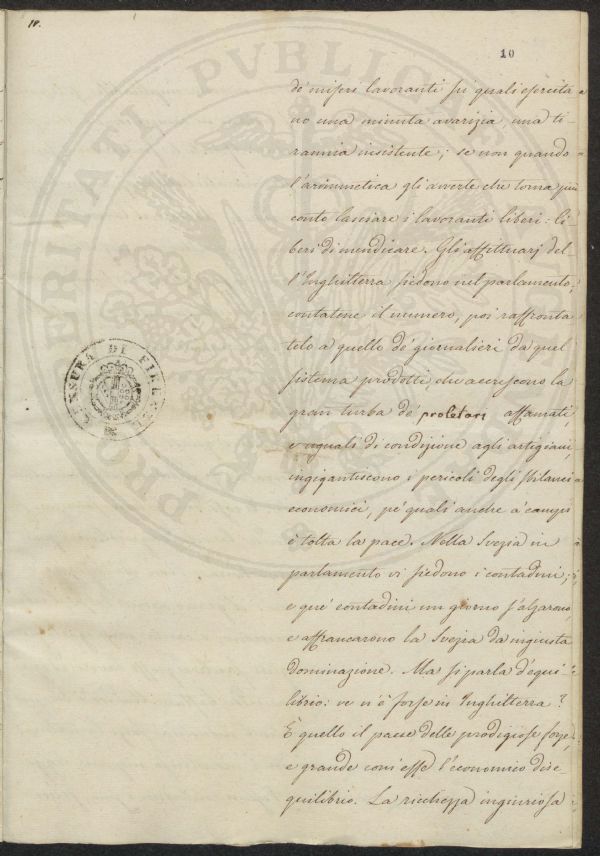 10.
10
de' miseri lavoranti su' quali esercita
no una minuta avarizia, una ti-
rannia insistente; se non quando
l'arimmetica gli avverte che torna più
conto lasciare i lavoranti liberi: li-
beri di mendicare. Gli affittuarj del-
l'Inghilterra siedono nel parlamento;
contatene il numero, poi raffronta
telo a quello de' giornalieri da quel
sistema prodotti, che accrescono la
gran turba de' proletarj affamati,
e uguali di condizione agli artigiani,
ingigantiscono i pericoli degli sbilanci
economici, pe' quali anche a' campi
è tolta la pace. Nella Svezia in
parlamento vi siedono i contadini;
e que' contadini un giorno s'alzarono,
e affrancarono la Svezia da ingiusta
dominazione. Ma si parla d'equi-
librio: ve n'è forse in Inghilterra?
È quello il paese delle prodigiose forze,
e grande com'esse l'economico dise-
quilibrio. La ricchezza ingiuriosa
CENSURA DI FIRENZE
PROSPERITATI PUBLICAE